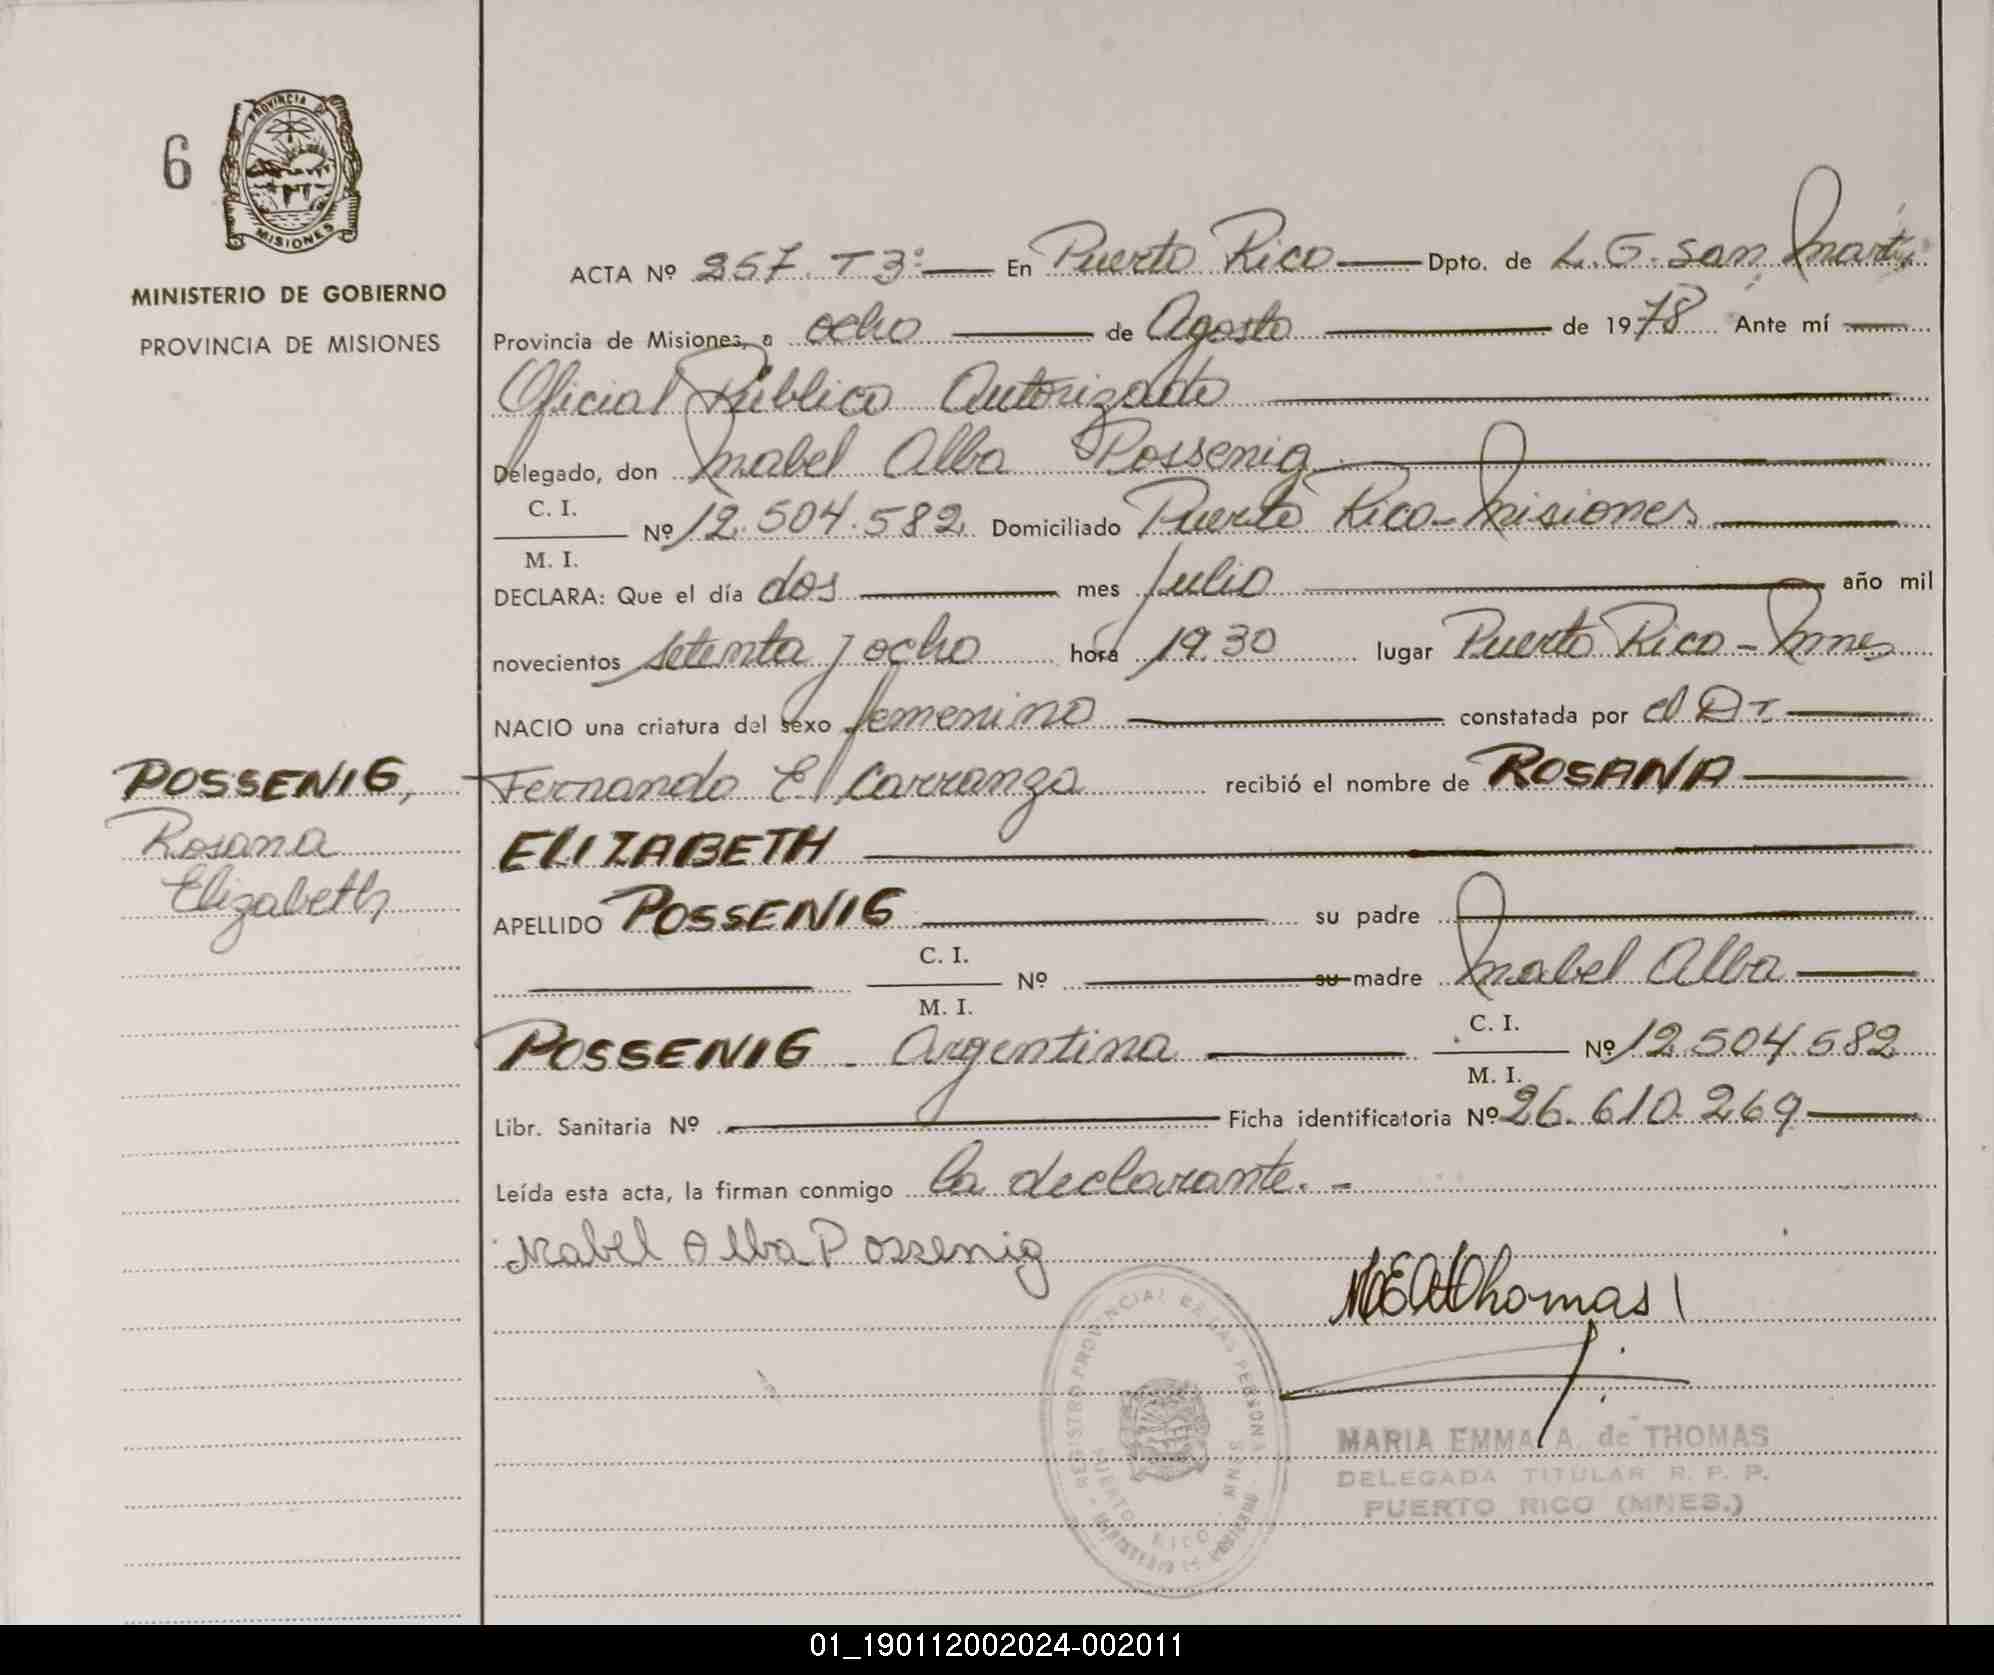 6
PROVINCIA DE
MISIONES
MINISTERIO DE GOBIERNO
PROVINCIA DE MISIONES
ACTA Nº 257. T 3º En Puerto Rico Dpto. de L. G. San Martín
Provincia de Misiones, a ocho de Agosto de 1978 Ante mí
Oficial Público Autorizado
Delegado, don Mabel Alba Possenig
C. I.
Nº 12.504.582 Domiciliado Puerto Rico - Misiones
M. I.
DECLARA: Que el día dos mes Julio año mil
novecientos setenta y ocho hora 19.30 lugar Puerto Rico - Mnes
NACIO una criatura del sexo femenino constatada por el Dr.
POSSENIG,
Rosana
Elizabeth
Fernando E. Carranza recibió el nombre de ROSANA
ELIZABETH
APELLIDO POSSENIG su padre
C. I.
Nº su madre Mabel Alba
M. I.
POSSENIG - Argentina
C. I.
Nº 12.504.582
M. I.
Libr. Sanitaria Nº Ficha identificatoria Nº 26.610.269
Leída esta acta, la firman conmigo la declarante. -
Mabel Alba Possenig
Thomas
REGISTRO PROVINCIAL DE LAS PERSONAS
PUERTO RICO - MNES
MINISTERIO DE GOBIERNO
MARIA EMMA A. de THOMAS
DELEGADA TITULAR R. P. P.
PUERTO RICO (MNES.)
01_190112002024-002011